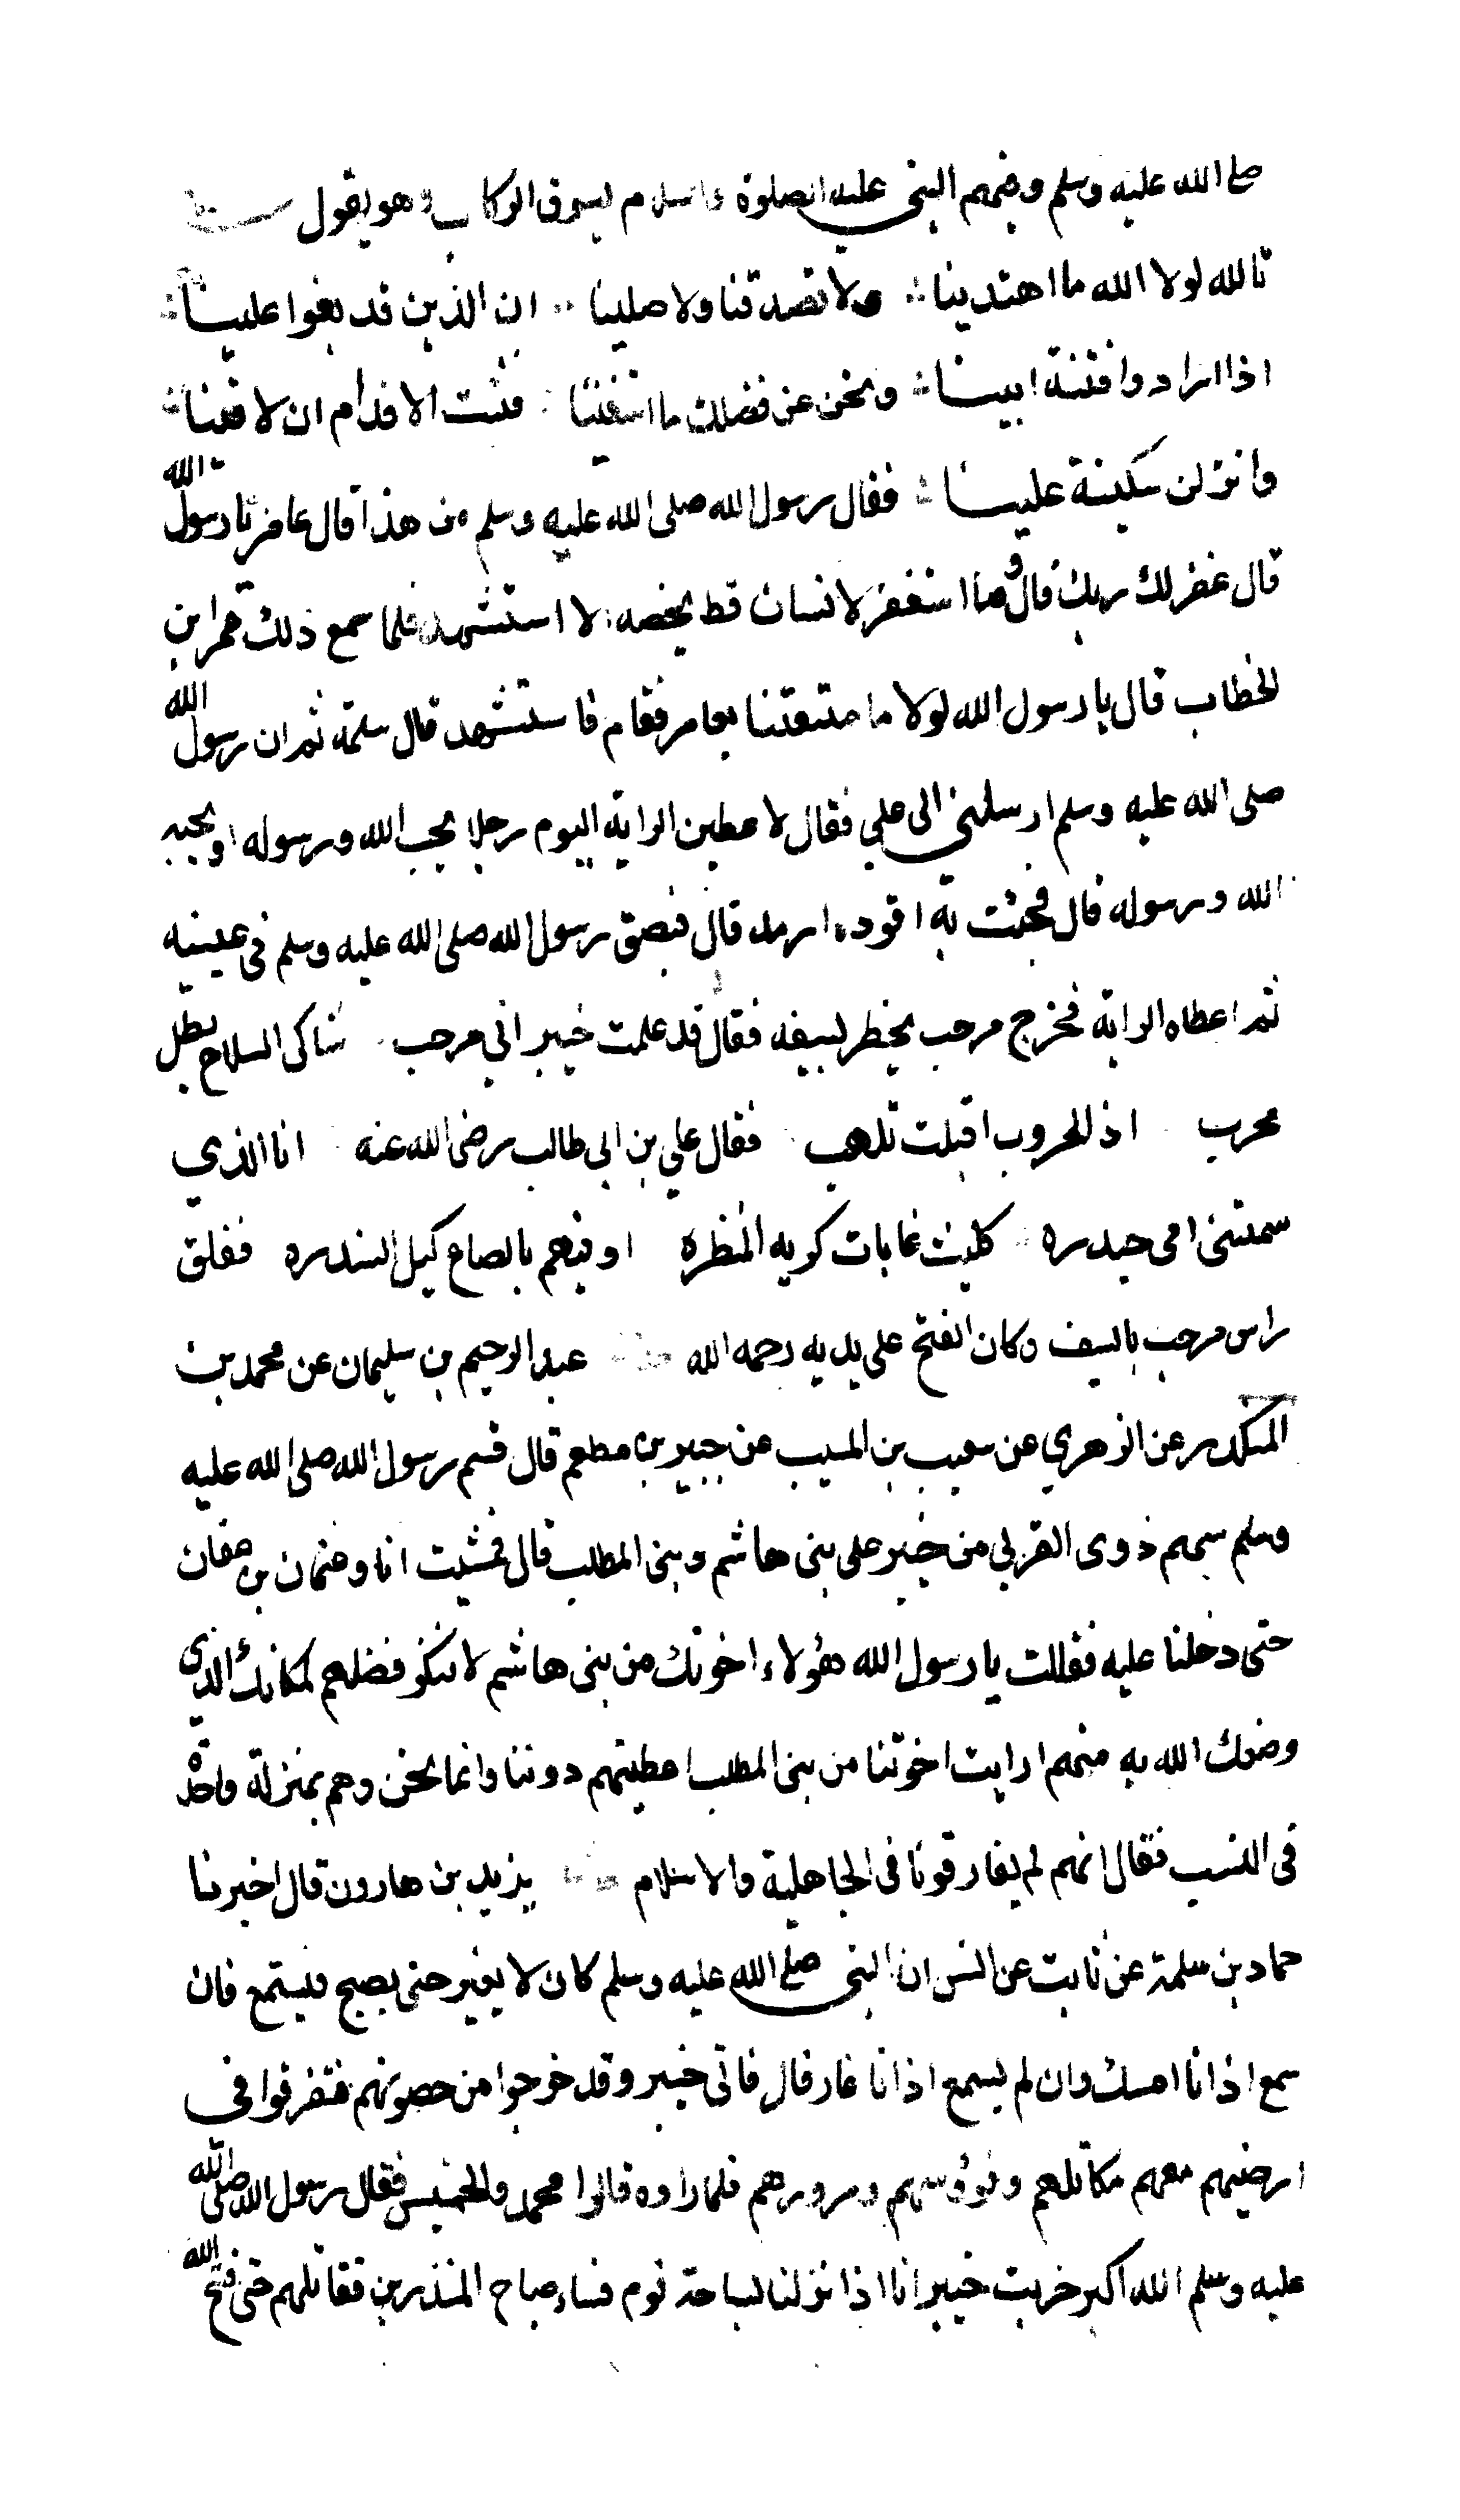 صلى الله عليه وسلم وفيهم النبي عليه الصلوة والسلام يسوق الركاب وهو يقول
تالله لولا الله ما اهتدينا ولا تصدقنا ولا صلينا ان الذين قد بغوا علينا
اذا ارادوا فتنة ابينا ونحن عن فضلك ما استغنينا فثبت الاقدام ان لاقينا
وانزلن سكينة علينا فقال رسول الله صلى الله عليه وسلم من هذا قال عامر يا رسول الله
قال غفر لك ربك قال وما استغفر لانسان قط يخصه الا استشهد فلما سمع ذلك عمر ابن
الخطاب قال يا رسول الله لولا ما متعتنا بعامر فقام فاستشهد قال سلمة ثم ان رسول الله
صلى الله عليه وسلم ارسلني الى علي فقال لاعطين الراية اليوم رجلا يحب الله ورسوله او يحبه
الله ورسوله قال فجئت به اقوده ارمد قال فبصق رسول الله صلى الله عليه وسلم في عينيه
ثم اعطاه الراية فخرج مرحب يخطر بسيفه فقال قد علمت خيبر اني مرحب شاكي السلاح بطل
مجرب اذ الحروب اقبلت تلهب فقال علي بن ابي طالب رضي الله عنه انا الذي
سمتني امي حيدره كليث غابات كريه المنظره اوفيهم بالصاع كيل السندره ففلق
راس مرحب بالسيف وكان الفتح على يديه رحمه الله عبد الرحيم بن سليمان عن محمد بن
المنكدر عن الزهري عن سعيب بن المسيب عن جبير بن مطعم قال قسم رسول الله صلى الله عليه
وسلم سهم ذوي القربي من خيبر على بني هاشم وبني المطلب قال فمشيت انا وعثمان بن عفان
حتى دخلنا عليه فقلت يا رسول الله هؤلاء اخوتك من بني هاشم لا ننكر فضلهم لمكانك الذي
وضعك الله به منهم ارايت اخوتنا من بني المطلب اعطيتهم دوننا وانما نحن وهم بمنزلة واحدة
في النسب فقال انهم لم يفارقونا في الجاهلية والاسلام يزيد بن هارون قال اخبرنا
حماد بن سلمة عن ثابت عن انس ان النبي صلى الله عليه وسلم كان لا يغير حتى يصبح فيستمع فان
سمع اذانا امسك وان لم يسمع اذانا غار قال فاتى خيبر وقد خرجوا من حصونهم فتفرقوا في
ارضيهم معهم مكاتلهم وفؤسهم ومرورهم فلما راوه قالوا محمد والخميس فقال رسول الله صلى الله
عليه وسلم الله اكبر خربت خيبر انا اذا نزلنا بساحة قوم فساء صباح المنذرين فقاتلهم حتى فتح الله